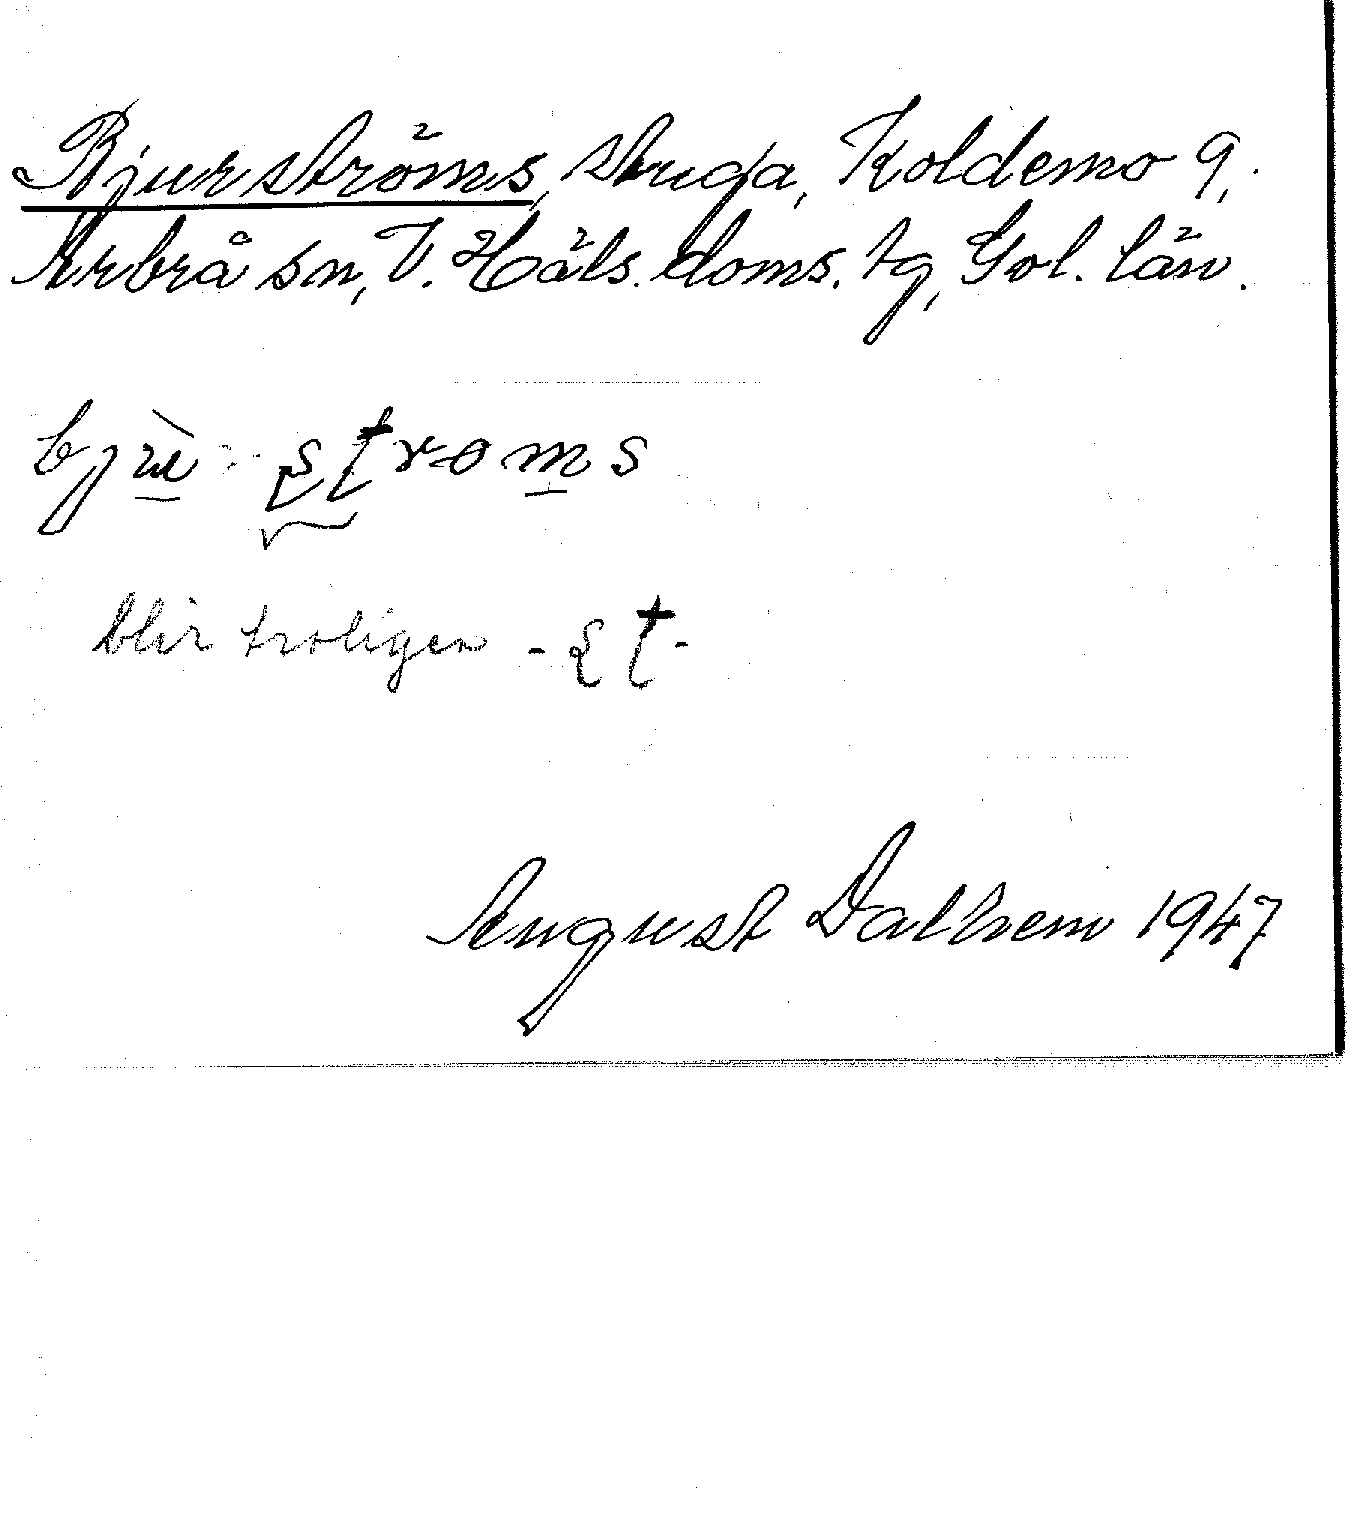 Bjurströms, stuga, Koldemo 9,
Arbrå sn, V. Häls. doms. tg, Gvl. län.
bjù: ștroms
blir troligen - șt -
August Dalhem 1947